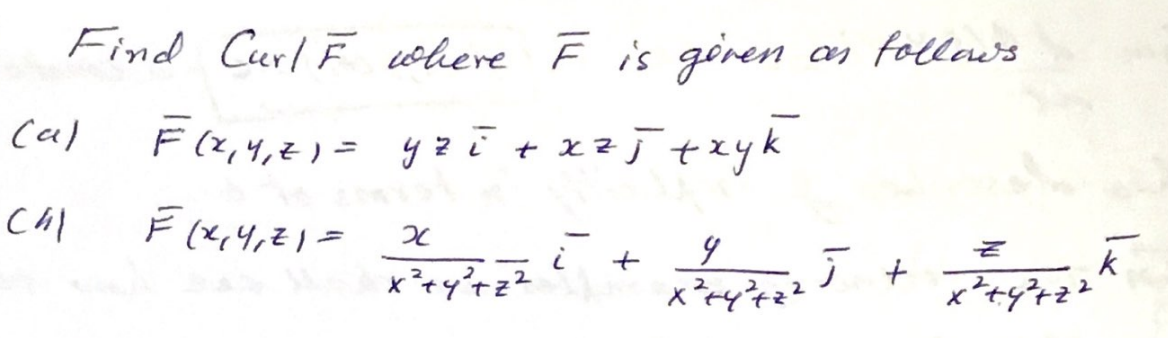 Find Curl F̅ where F̅ is given as follows
(a) F̅(x,y,z) = yz i̅ + xz j̅ + xy k̅
(b) F̅(x,y,z) = x/(x²+y²+z²) i̅ + y/(x²+y²+z²) j̅ + z/(x²+y²+z²) k̅